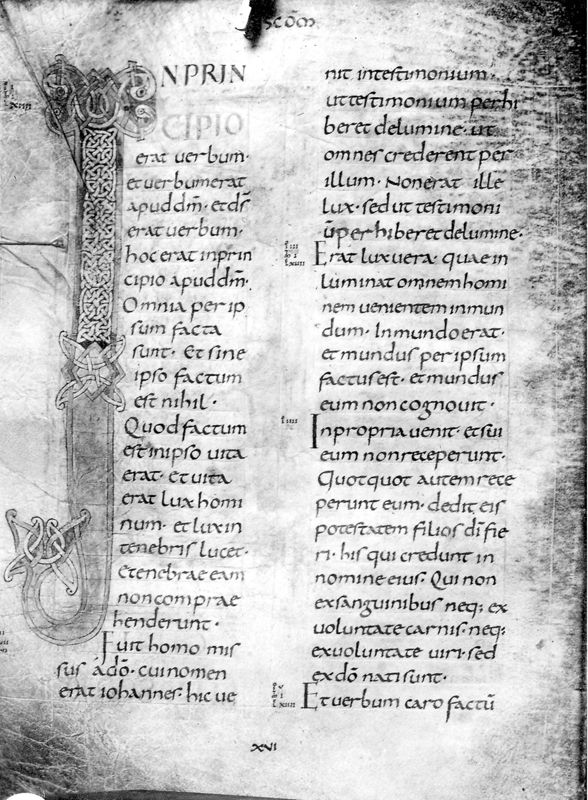 SCŌM
INPRIN
CIPIO
erat uerbum·
et uerbum erat
apud dm̄· et ds̄
erat uerbum·
hoc erat in prin
cipio apud dm̄·
Omnia per ip
sum facta
sunt· Et sine
ipso factum
est nihil·
Quod factum
est in ipso uita
erat· et uita
erat lux homi
num· et lux in
tenebris lucet·
Et tenebrae eam
non comprae
henderunt·
Fuit homo mis
sus a dō· cui nomen
erat iohannes· hic ue
nit in testimonium·
ut testimonium perhi
beret de lumine· ut
omnes crederent per
illum· Non erat ille
lux· sed ut testimoni
ūperhiberet de lumine·
Erat lux uera· quae in
luminat omnem homi
nem uenientem in mun
dum· In mundo erat·
et mundus per ipsum
factus est· et mundus
eum non cognouit·
In propria uenit· et sui
eum non receperunt·
Quotquot autem rece
perunt eum· dedit eis
potestatem filios dī fie
ri· his qui credunt in
nomine eius· Qui non
ex sanguinibus neq; ex
uoluntate carnis· neq;
ex uoluntate uiri· sed
ex dō nati sunt·
Et uerbum caro factū
XVI